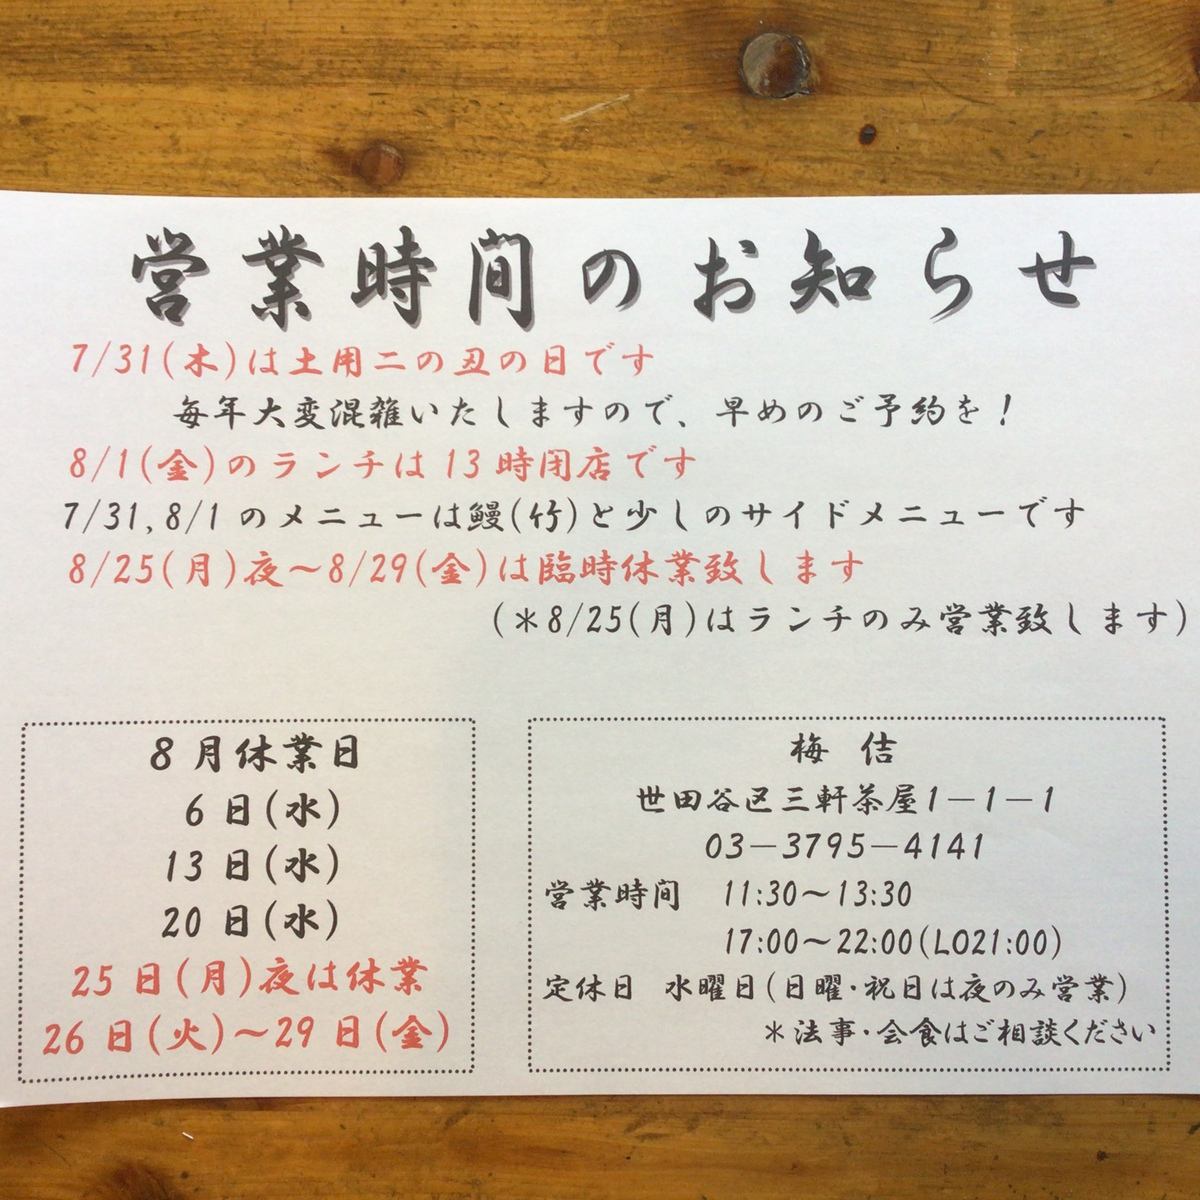 営業時間のお知らせ
7/31(木)は土用二の丑の日です
毎年大変混雑いたしますので、早めのご予約を!
8/1(金)のランチは13時閉店です
7/31,8/1のメニューは鰻(竹)と少しのサイドメニューです
8/25(月)夜～8/29(金)は臨時休業致します
(＊8/25(月)はランチのみ営業致します)
8月休業日
6日(水)
13日(水)
20日(水)
25日(月)夜は休業
26日(火)～29日(金)
梅 佶
世田谷区三軒茶屋1－1－1
03－3795－4141
営業時間 11:30～13:30
17:00～22:00(LO21:00)
定休日 水曜日(日曜・祝日は夜のみ営業)
＊法事・会食はご相談ください